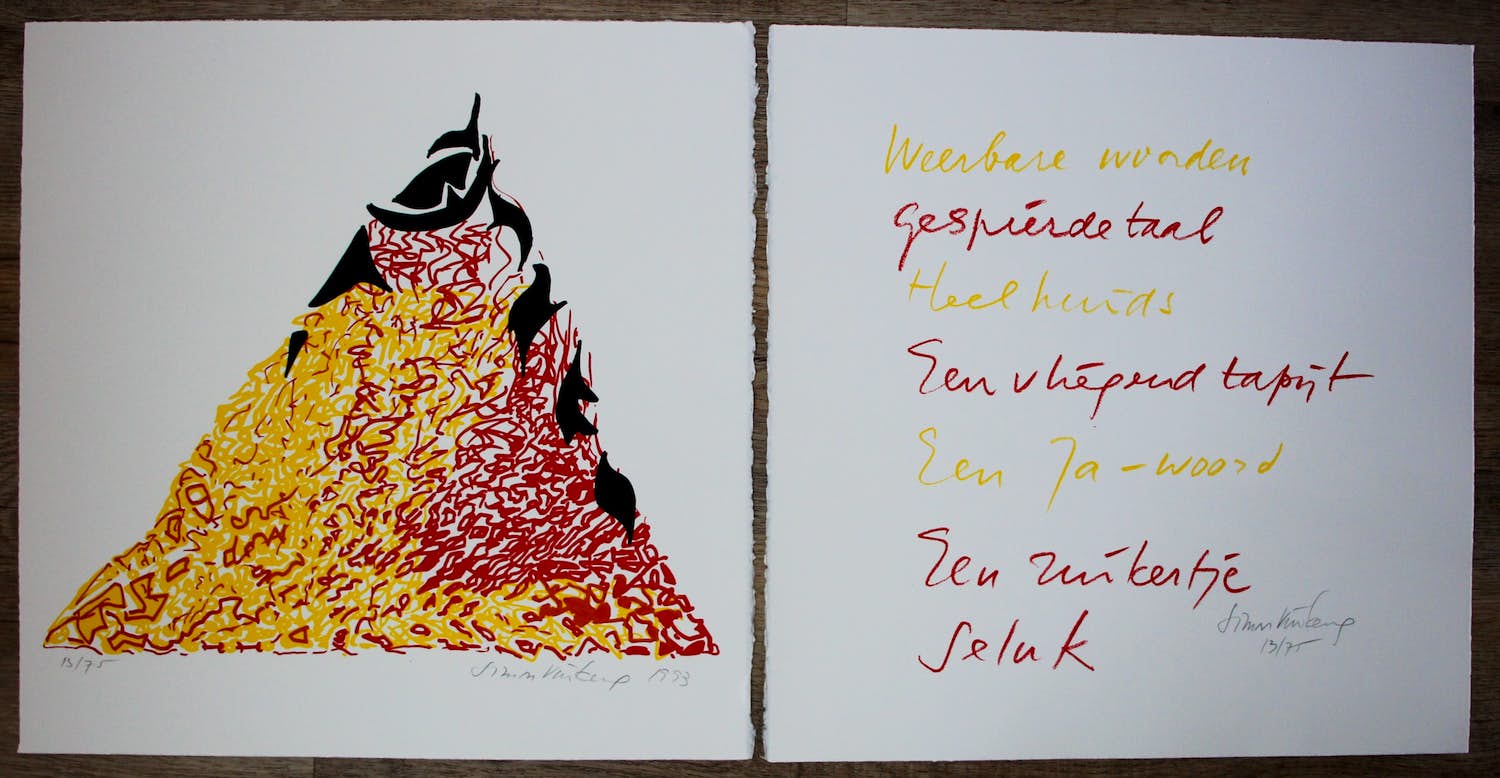 13/75
Simon Vinkenoog 1993
Weerbare woorden
gespierde taal
Heelhuids
Een vliegend tapijt
Een Ja-woord
Een zuikertje
Geluk
Simon Vinkenoog
13/75